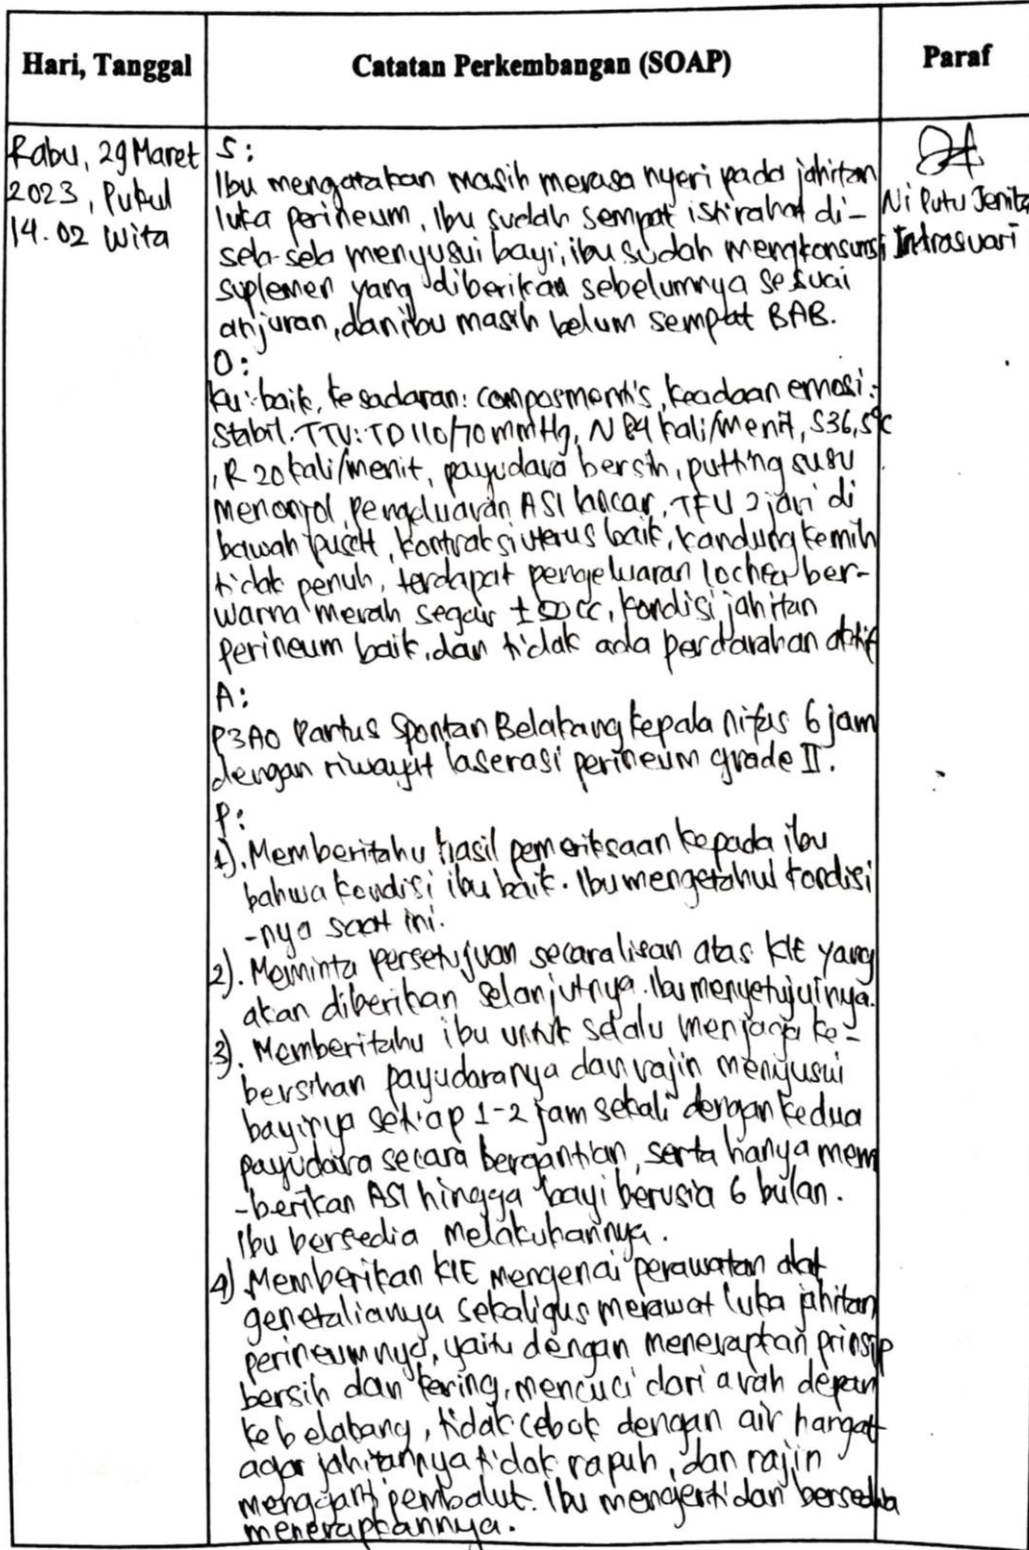 Hari, Tanggal
Catatan Perkembangan (SOAP)
Paraf
Rabu, 29 Maret
2023, Pukul
14.02 Wita
S:
Ibu mengatakan masih merasa nyeri pada jahitan
luka perineum, Ibu sudah sempat istirahat di-
sela-sela menyusui bayi, ibu sudah mengkonsumsi
suplemen yang diberikan sebelumnya sesuai
anjuran, dan ibu masih belum sempat BAB.
O:
Ku: baik, kesadaran: composmentis, keadaan emosi:
Stabil. TTV: TD 110/70 mmHg, N 84 kali/menit, S 36,5°C
, R 20 kali/menit, payudara bersih, putting susu
menonjol, pengeluaran ASI lancar, TFU 2 jari di
bawah pusat, kontraksi uterus baik, kandung kemih
tidak penuh, terdapat pengeluaran lochea ber-
warna merah segar ± 50 cc, kondisi jahitan
perineum baik, dan tidak ada perdarahan aktif
A:
P3A0 Partus Spontan Belakang kepala nifas 6 jam
dengan riwayat laserasi perineum grade II.
P:
1). Memberitahu hasil pemeriksaan kepada ibu
bahwa kondisi ibu baik. Ibu mengetahui kondisi
-nya saat ini.
2). Meminta persetujuan secara lisan atas KIE yang
akan diberikan selanjutnya. Ibu menyetujuinya.
3). Memberitahu ibu untuk selalu menjaga ke-
bersihan payudaranya dan rajin menyusui
bayinya setiap 1-2 jam sekali dengan kedua
payudara secara bergantian, serta hanya mem
-berikan ASI hingga bayi berusia 6 bulan.
Ibu bersedia melakukannya.
4) Memberikan KIE mengenai perawatan alat
genetalianya sekaligus merawat luka jahitan
perineumnya, yaitu dengan menerapkan prinsip
bersih dan kering, mencuci dari arah depan
kebelakang, tidak cebok dengan air hangat
agar jahitannya tidak rapuh, dan rajin
mengganti pembalut. Ibu mengerti dan bersedia
menerapkannya.
Ni Putu Jenita
Intrasuari